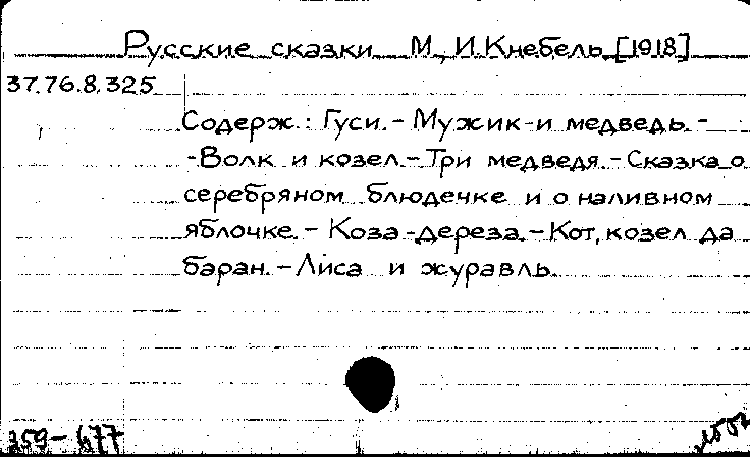 Русские сказки М., И. Кнебель. [1918]
37.76.8.325
Содерж.: Гуси. - Мужик и медведь. -
- Волк и козел. - Три медведя. - Сказка о
серебряном блюдечке и о наливном
яблочке. - Коза-дереза. - Кот, козел да
баран. - Лиса и журавль.
359-677